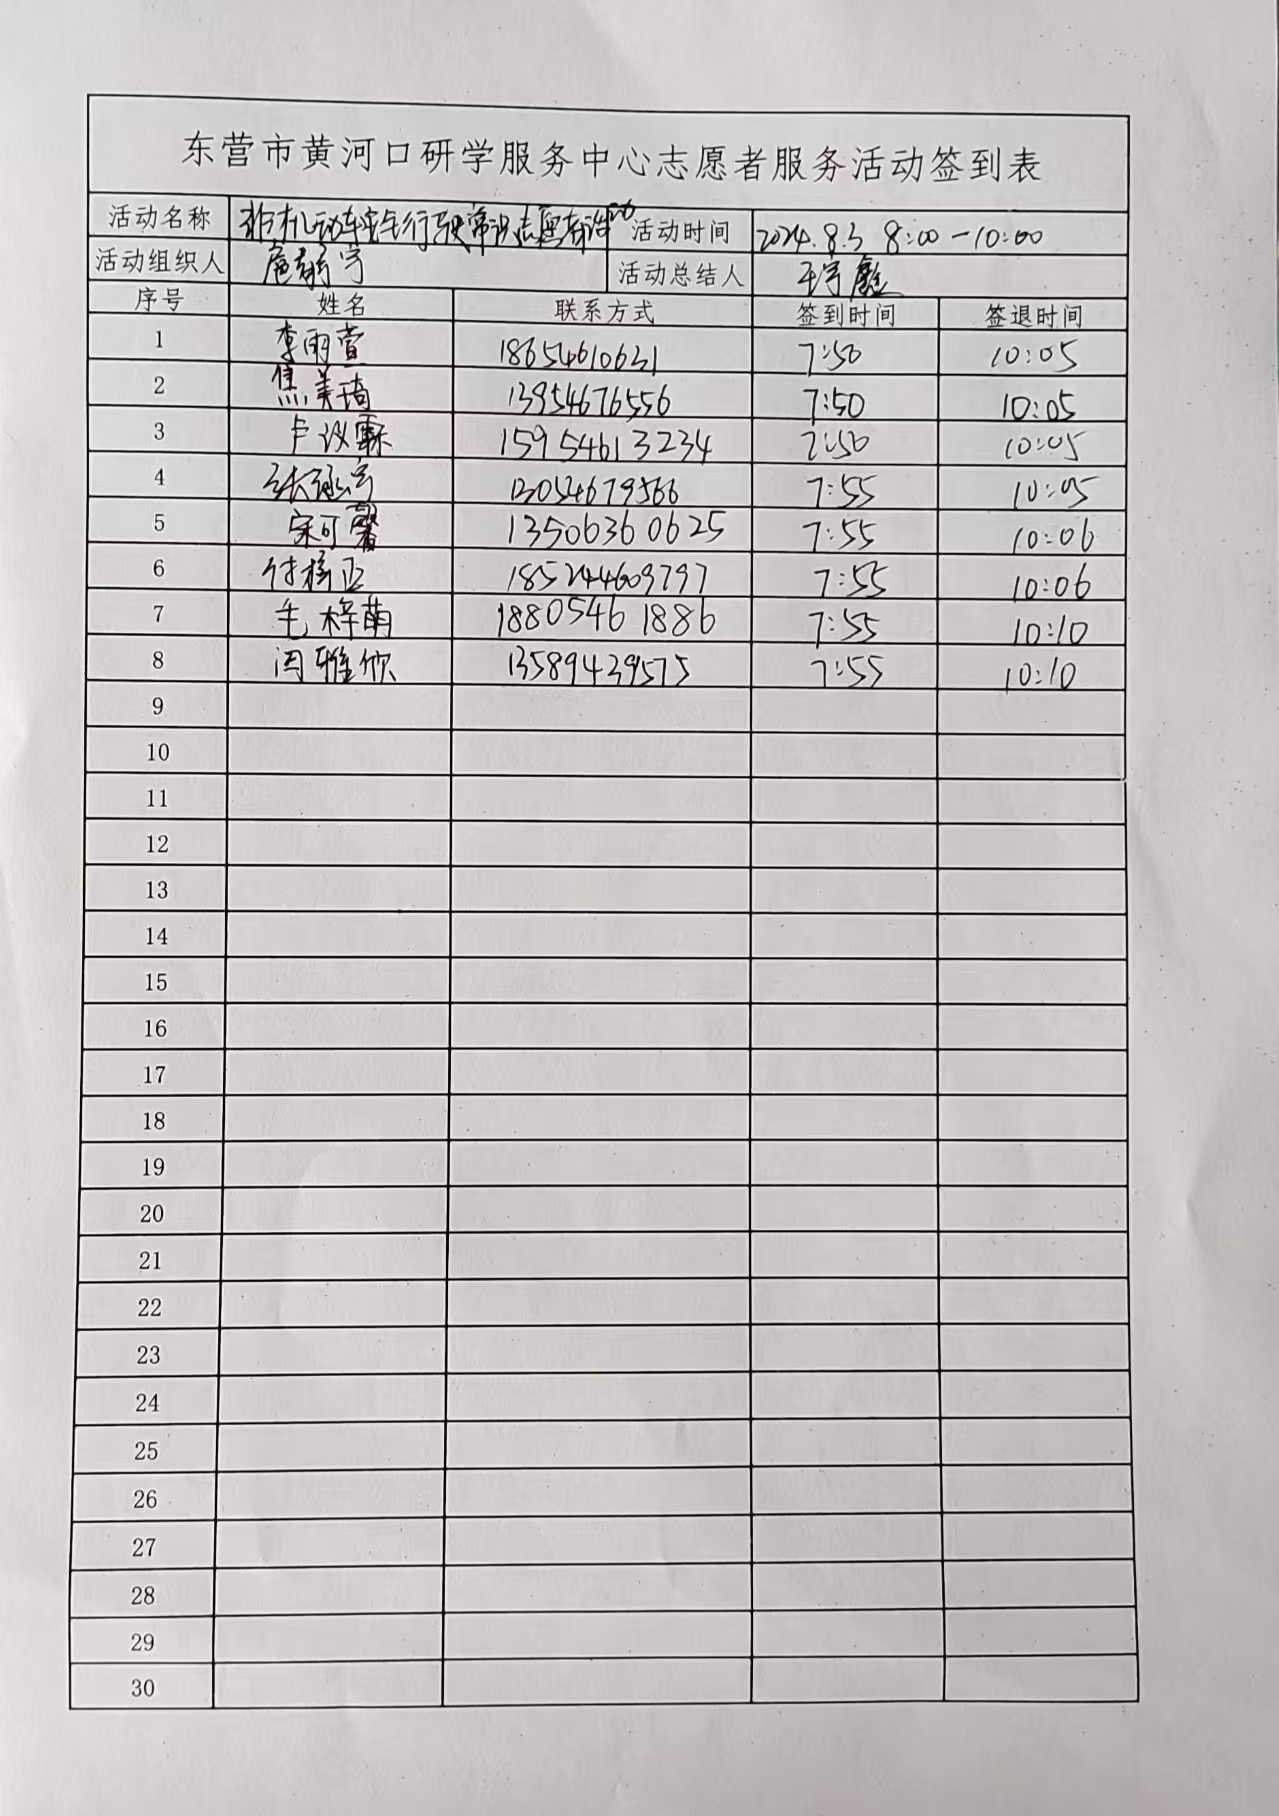 东营市黄河口研学服务中心志愿者服务活动签到表
活动名称 非机动车安全行驶常识志愿宣讲 活动时间 2024.8.3 8:00-10:00
活动组织人 活动总结人
序号 姓名 联系方式 签到时间 签退时间
1 李雨萱 18654610631 7:50 10:05
2 焦美琦 13954676556 7:50 10:05
3 卢议霖 15954613234 7:50 10:05
4 张涵宇 13054679566 7:55 10:05
5 宋可馨 13506360625 7:55 10:06
6 付梓正 185244609797 7:55 10:06
7 毛梓萌 18805461886 7:55 10:10
8 闫雅欣 13589429575 7:55 10:10
9
10
11
12
13
14
15
16
17
18
19
20
21
22
23
24
25
26
27
28
29
30